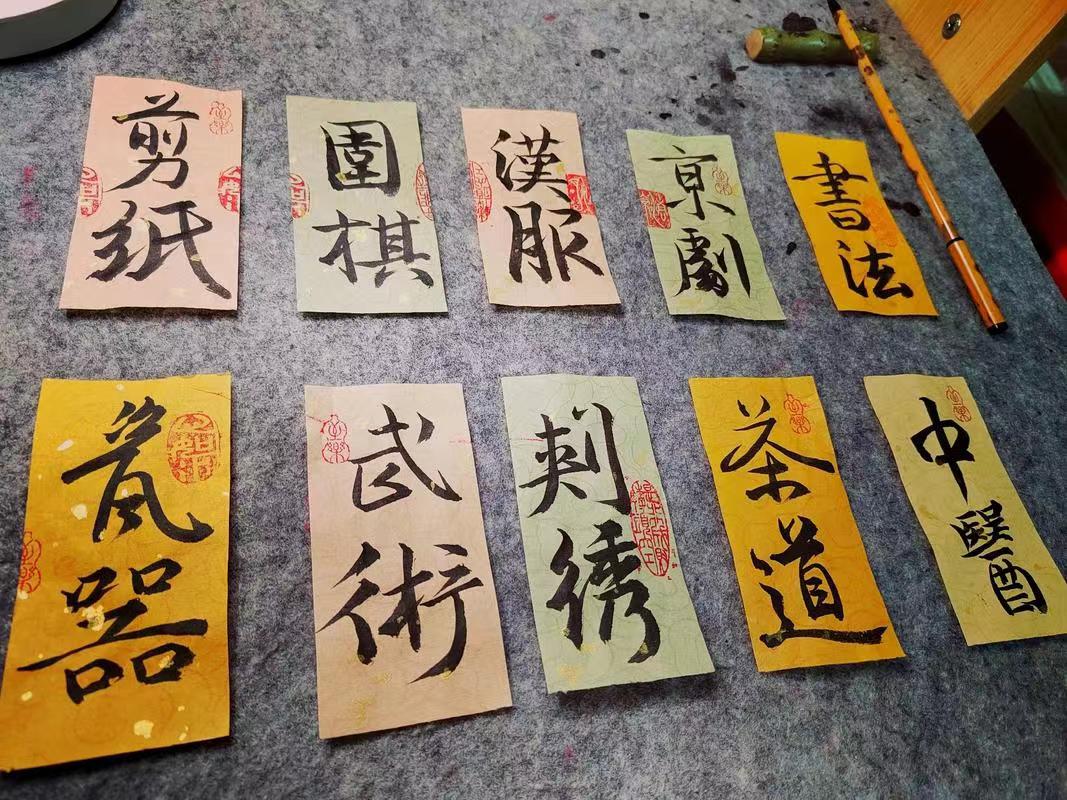 剪纸
圍棋
漢服
京劇
書法
瓷器
武術
刺绣
茶道
中醫